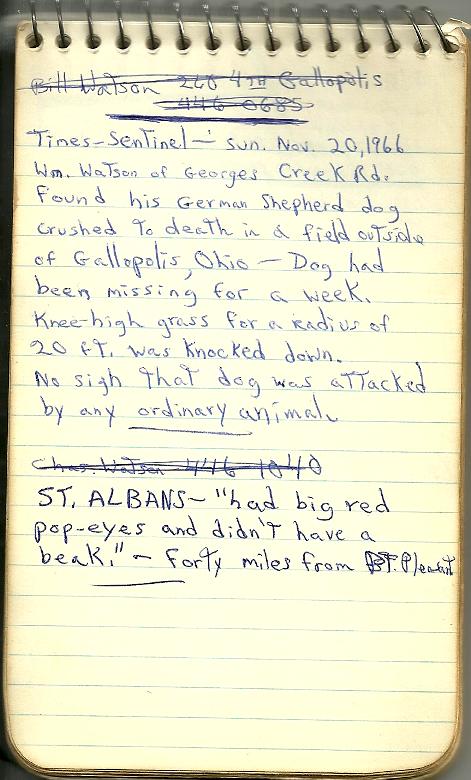 Bill Watson 260 4TH Gallopolis
446-0685
Times-Sentinel - Sun. Nov. 20, 1966
Wm. Watson of Georges Creek Rd.
found his German Shepherd dog
crushed to death in a field outside
of Gallopolis, Ohio - Dog had
been missing for a week.
Knee-high grass for a radius of
20 ft. was knocked down.
No sigh that dog was attacked
by any ordinary animal.
Chas. Watson 446 1040
ST. ALBANS - "had big red
pop-eyes and didn't have a
beak." - Forty miles from PT. Pleasant